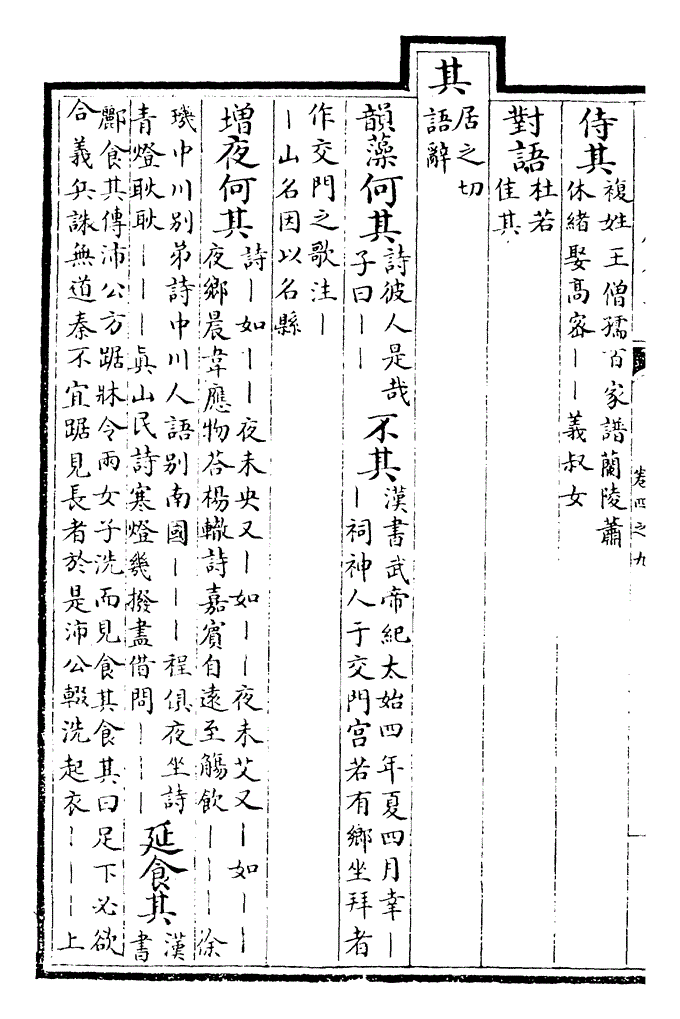 卷四之九
侍其複姓王僧孺百家譜蘭陵蕭休緒娶髙宻丨丨義叔女
對語杜若佳其
其居之切語辭
韻藻何其詩彼人是哉子曰丨丨不其漢書武帝紀太始四年夏四月幸丨丨祠神人于交門宫若有鄉坐拜者
作交門之歌注丨丨山名因以名縣
增夜何其詩丨如丨丨夜未央又丨如丨丨夜未艾又丨如丨丨夜鄉晨韋應物荅楊轍詩嘉賓自遠至觴飲丨丨丨徐
璣中川别弟詩中川人語别南國丨丨丨程俱夜坐詩青燈耿耿丨丨丨眞山民詩寒燈幾撥盡借問丨丨丨延食其漢書
酈食其傳沛公方踞牀令兩女子洗而見食其食其曰足下必欲合義兵誅無道秦不宜踞見長者於是沛公輟洗起衣丨丨丨上